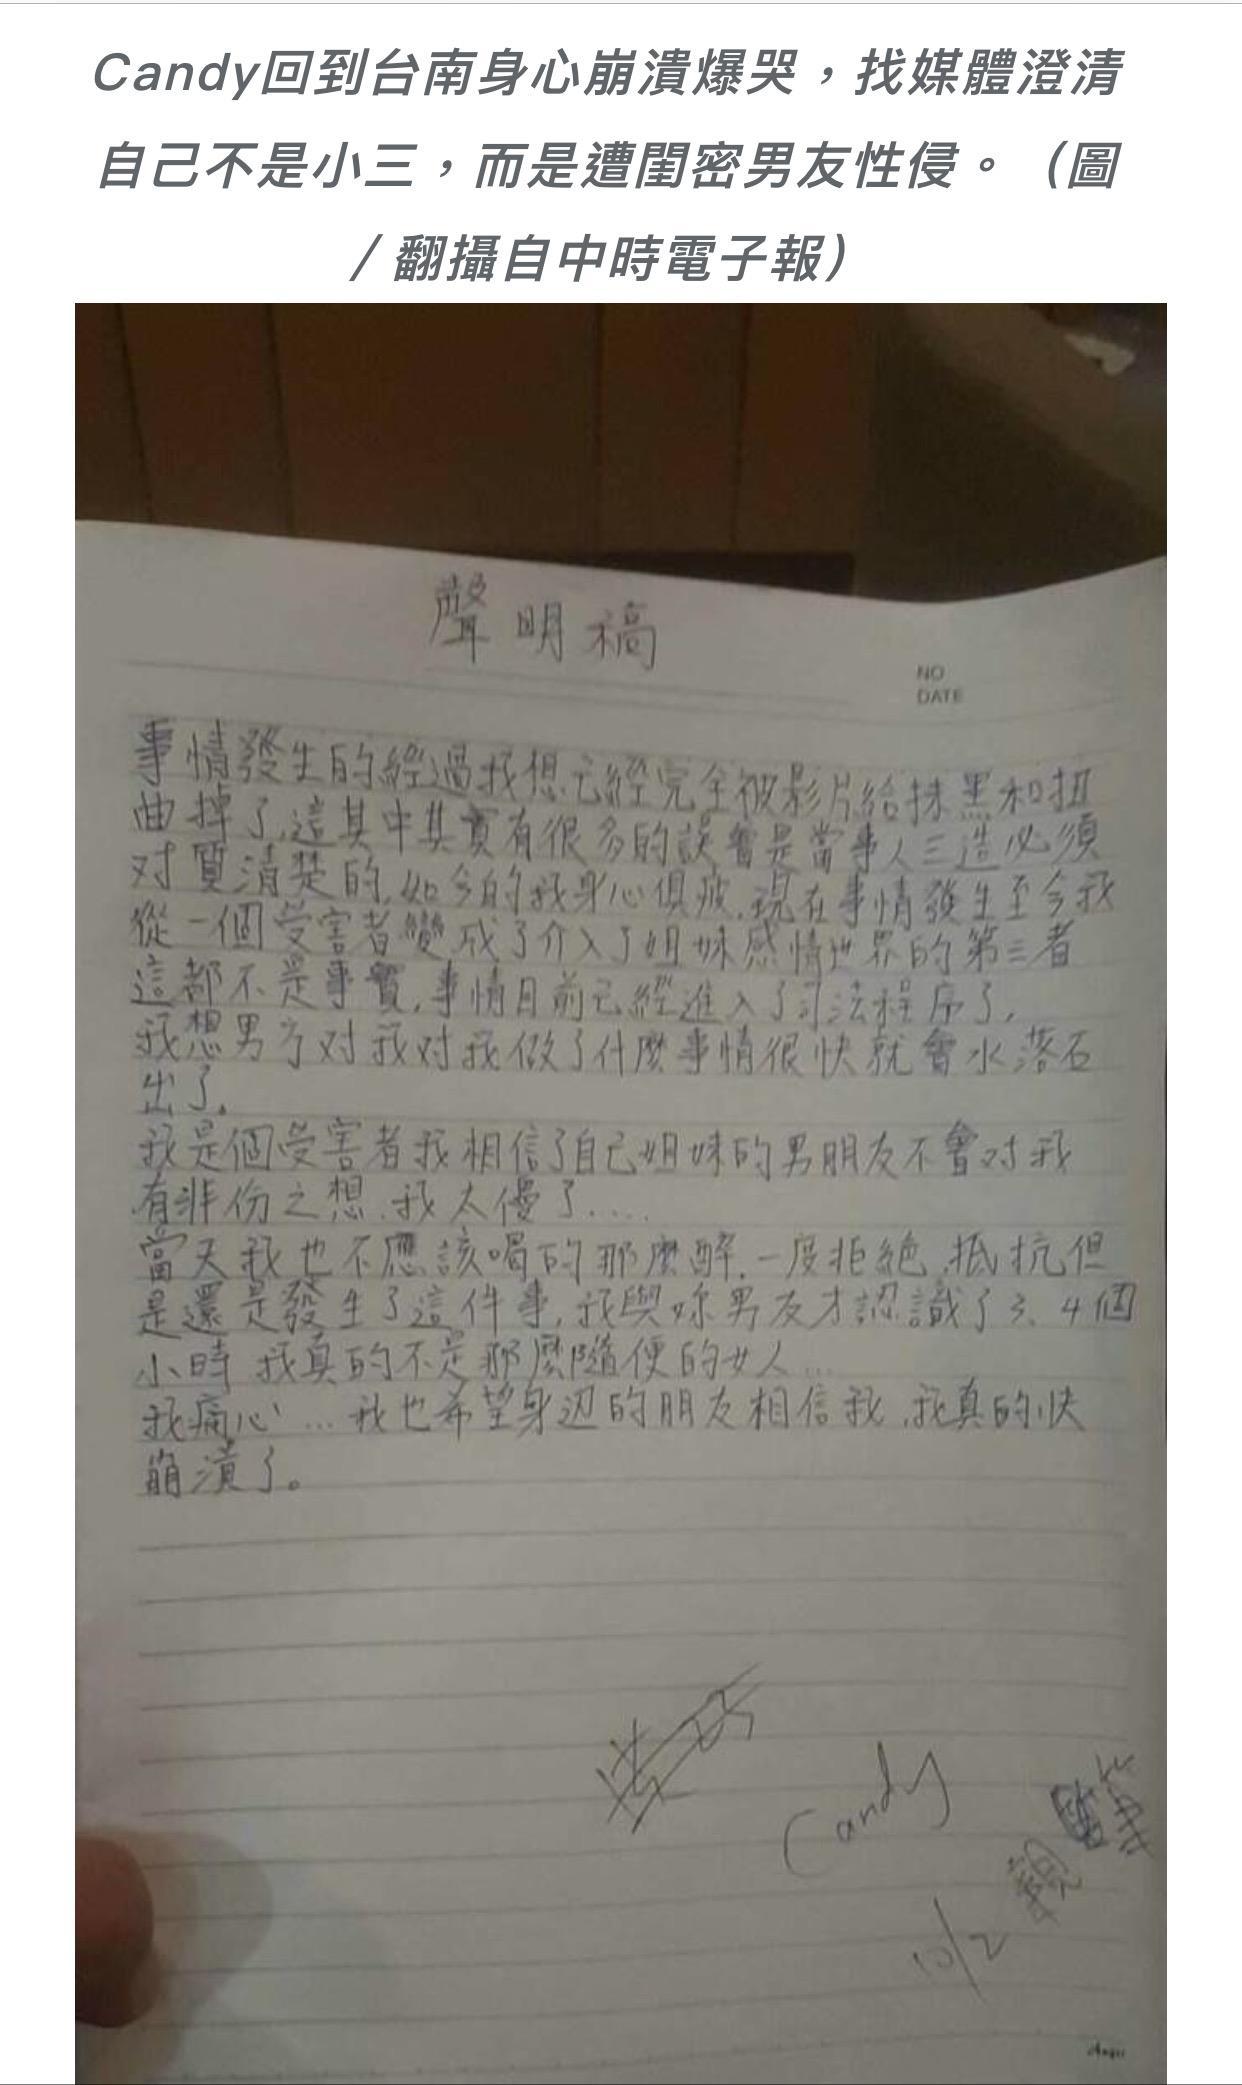 Candy回到台南身心崩潰爆哭，找媒體澄清
自己不是小三，而是遭閨密男友性侵。（圖
／翻攝自中時電子報）
聲明稿
NO
DATE
事情發生的經過我想已經完全被影片給抹黑和扭
曲掉了,這其中其實有很多的誤會是當事人三造必須
对質清楚的,如今的我身心俱疲,現在事情發生至今我
從一個受害者變成了介入了姐妹感情世界的第三者
這都不是事實,事情目前已經進入了司法程序了,
我想男方对我对我做了什麼事情很快就會水落石
出了,
我是個受害者我相信了自己姐妹的男朋友不會对我
有非份之想,我太傻了.....
當天我也不應該喝的那麼醉,一度拒絕,抵抗但
是還是發生了這件事,我與妳男友才認識了3、4個
小時 我真的不是那麼隨便的女人...
我痛心...我也希望身边的朋友相信我,我真的快
崩潰了。
Candy
親筆
10/2